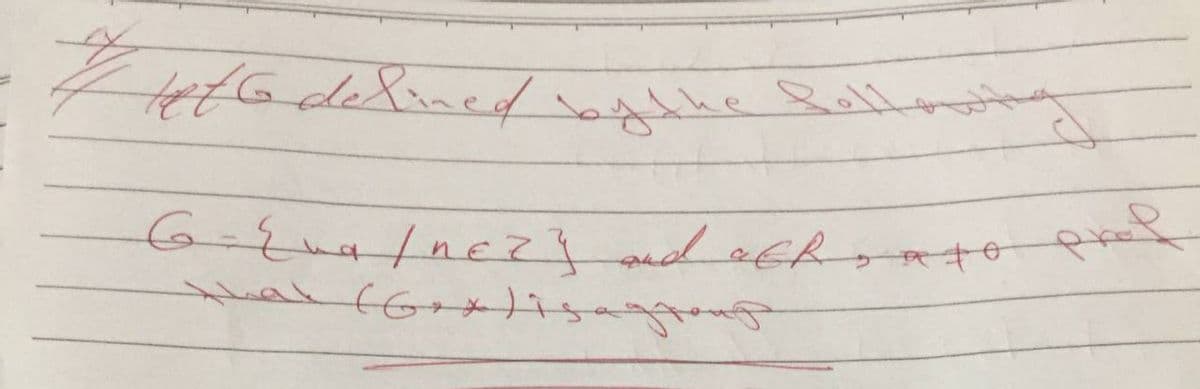 let G defined by the following
G = {na / n ∈ Z} and a ∈ R, a ≠ 0 prof
that (G, *) is a group